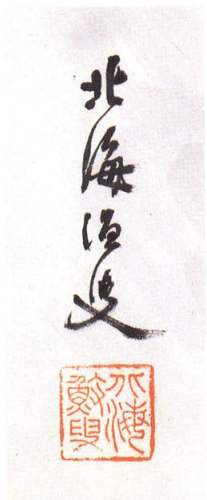 北海漁叟
北海
魰叟